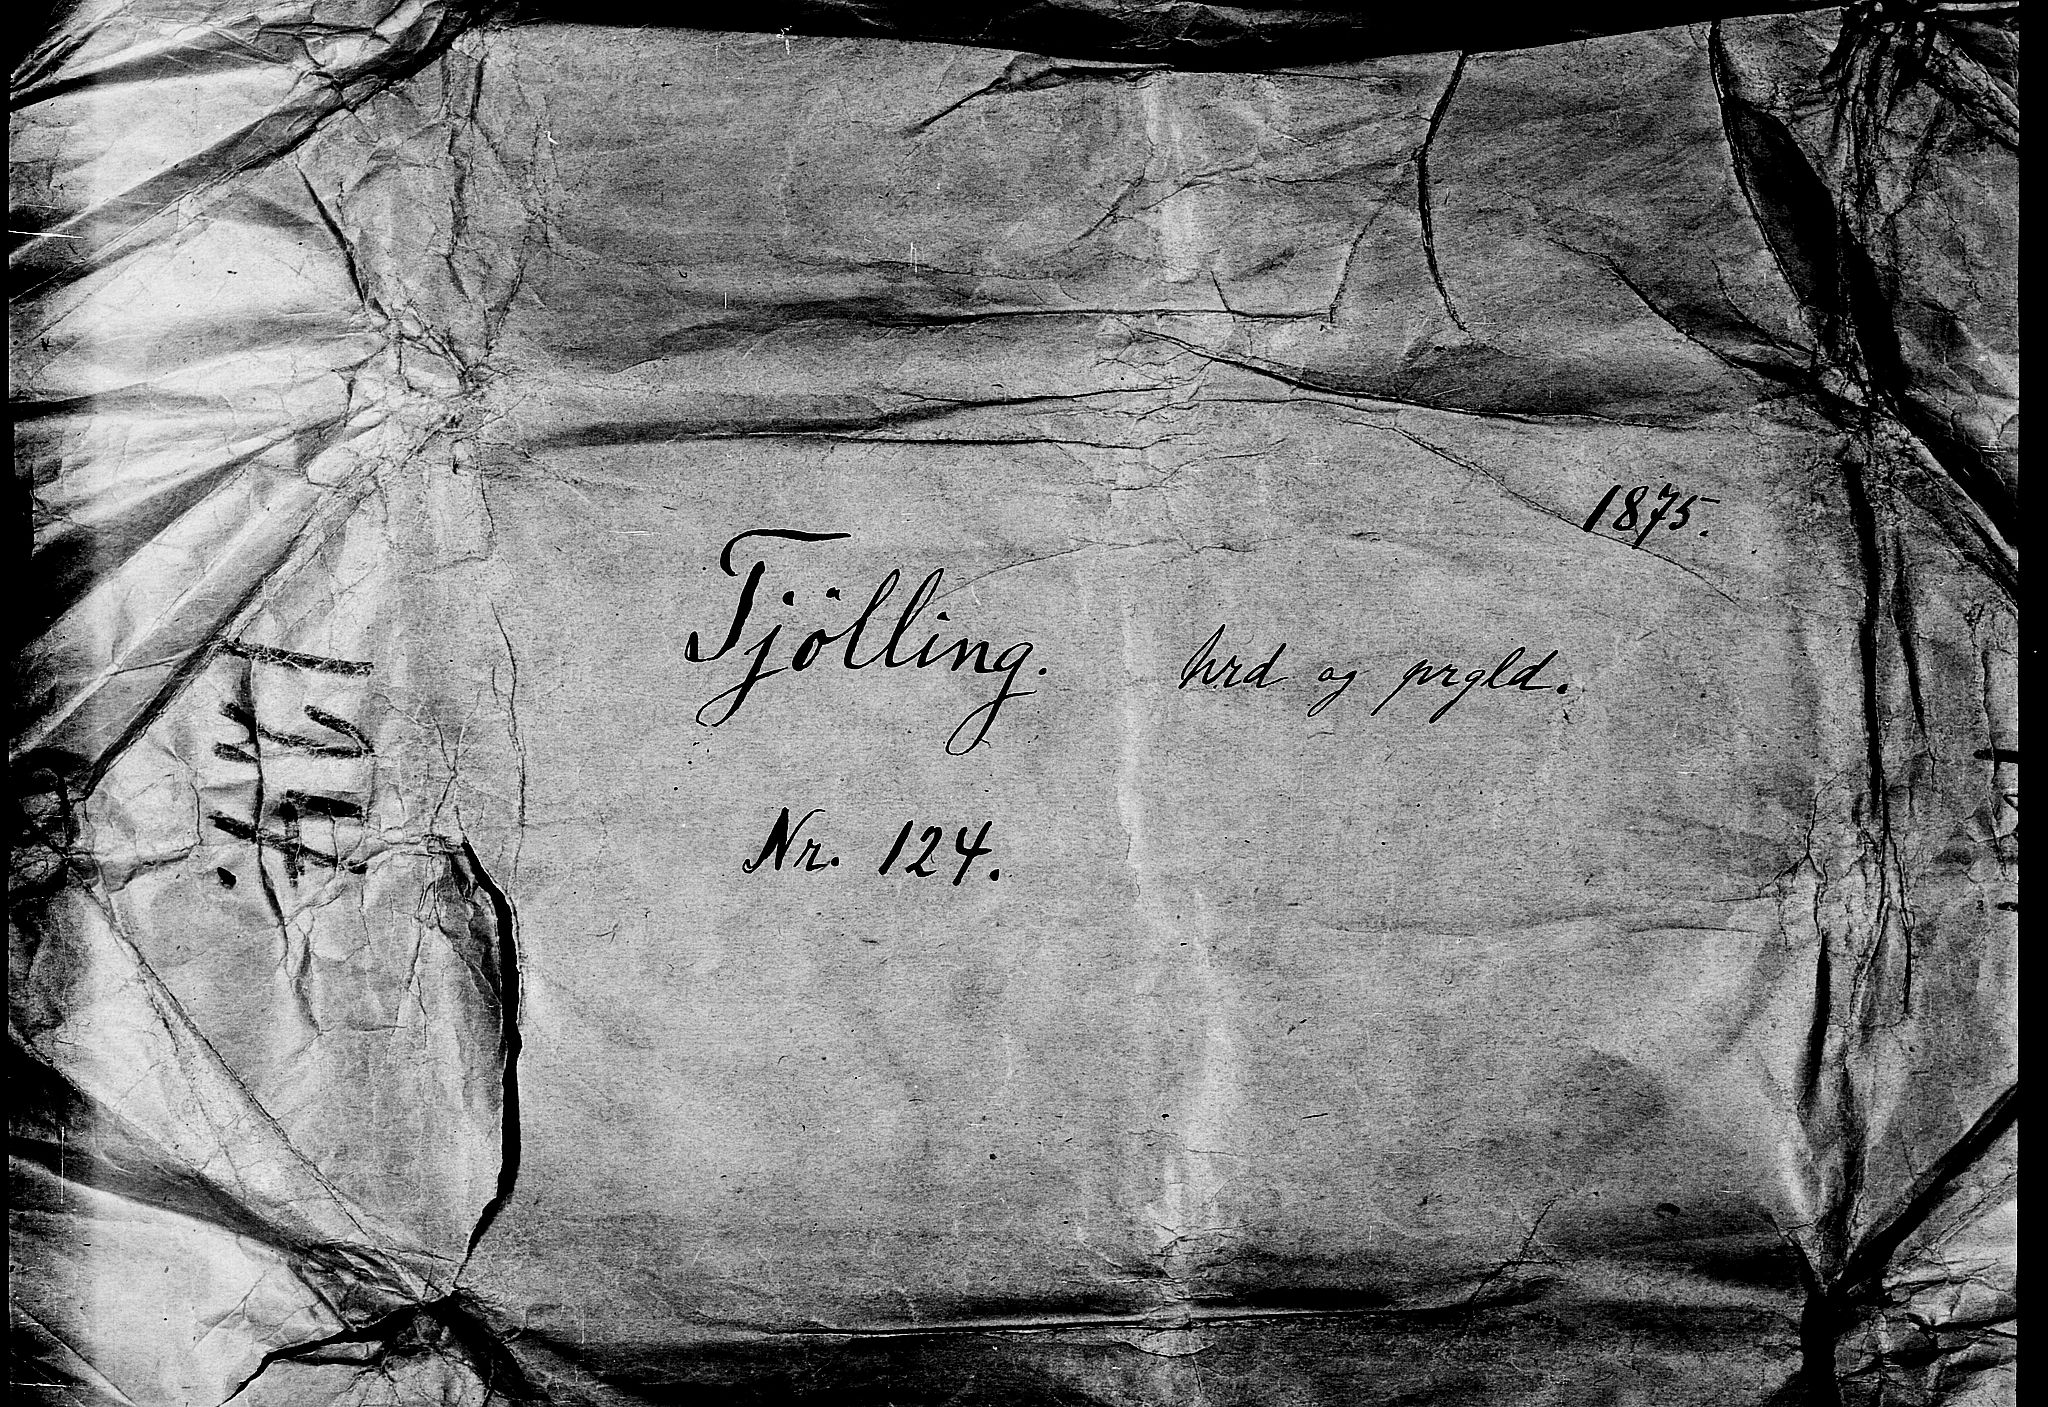 1875.
Tjölling. hrd og prgld.
Nr. 124.